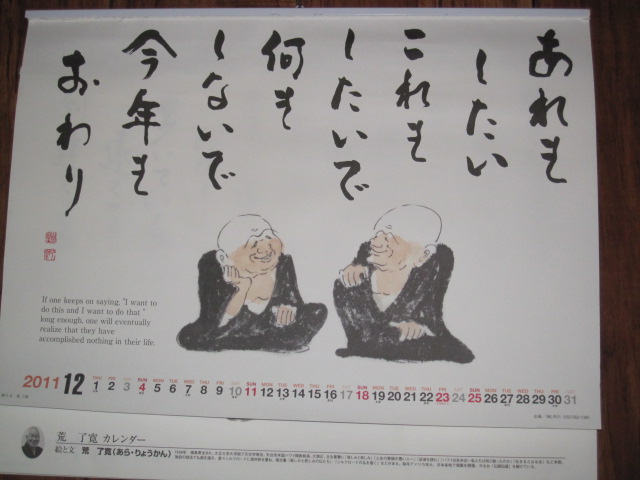 あれも
したい
これも
したいで
何も
しないで
今年も
おわり
If one keeps on saying, "I want to
do this and I want to do that "
long enough, one will eventually
realize that they have
accomplished nothing in their life.
2011 12
THU FRI SAT SUN MON TUE WED THU FRI SAT SUN MON TUE WED THU FRI SAT SUN MON TUE WED THU FRI SAT SUN MON TUE WED THU FRI SAT
1 2 3 4 5 6 7 8 9 10 11 12 13 14 15 16 17 18 19 20 21 22 23 24 25 26 27 28 29 30 31
荒 了寛 カレンダー
絵と文 荒 了寛(あら・りょうかん)